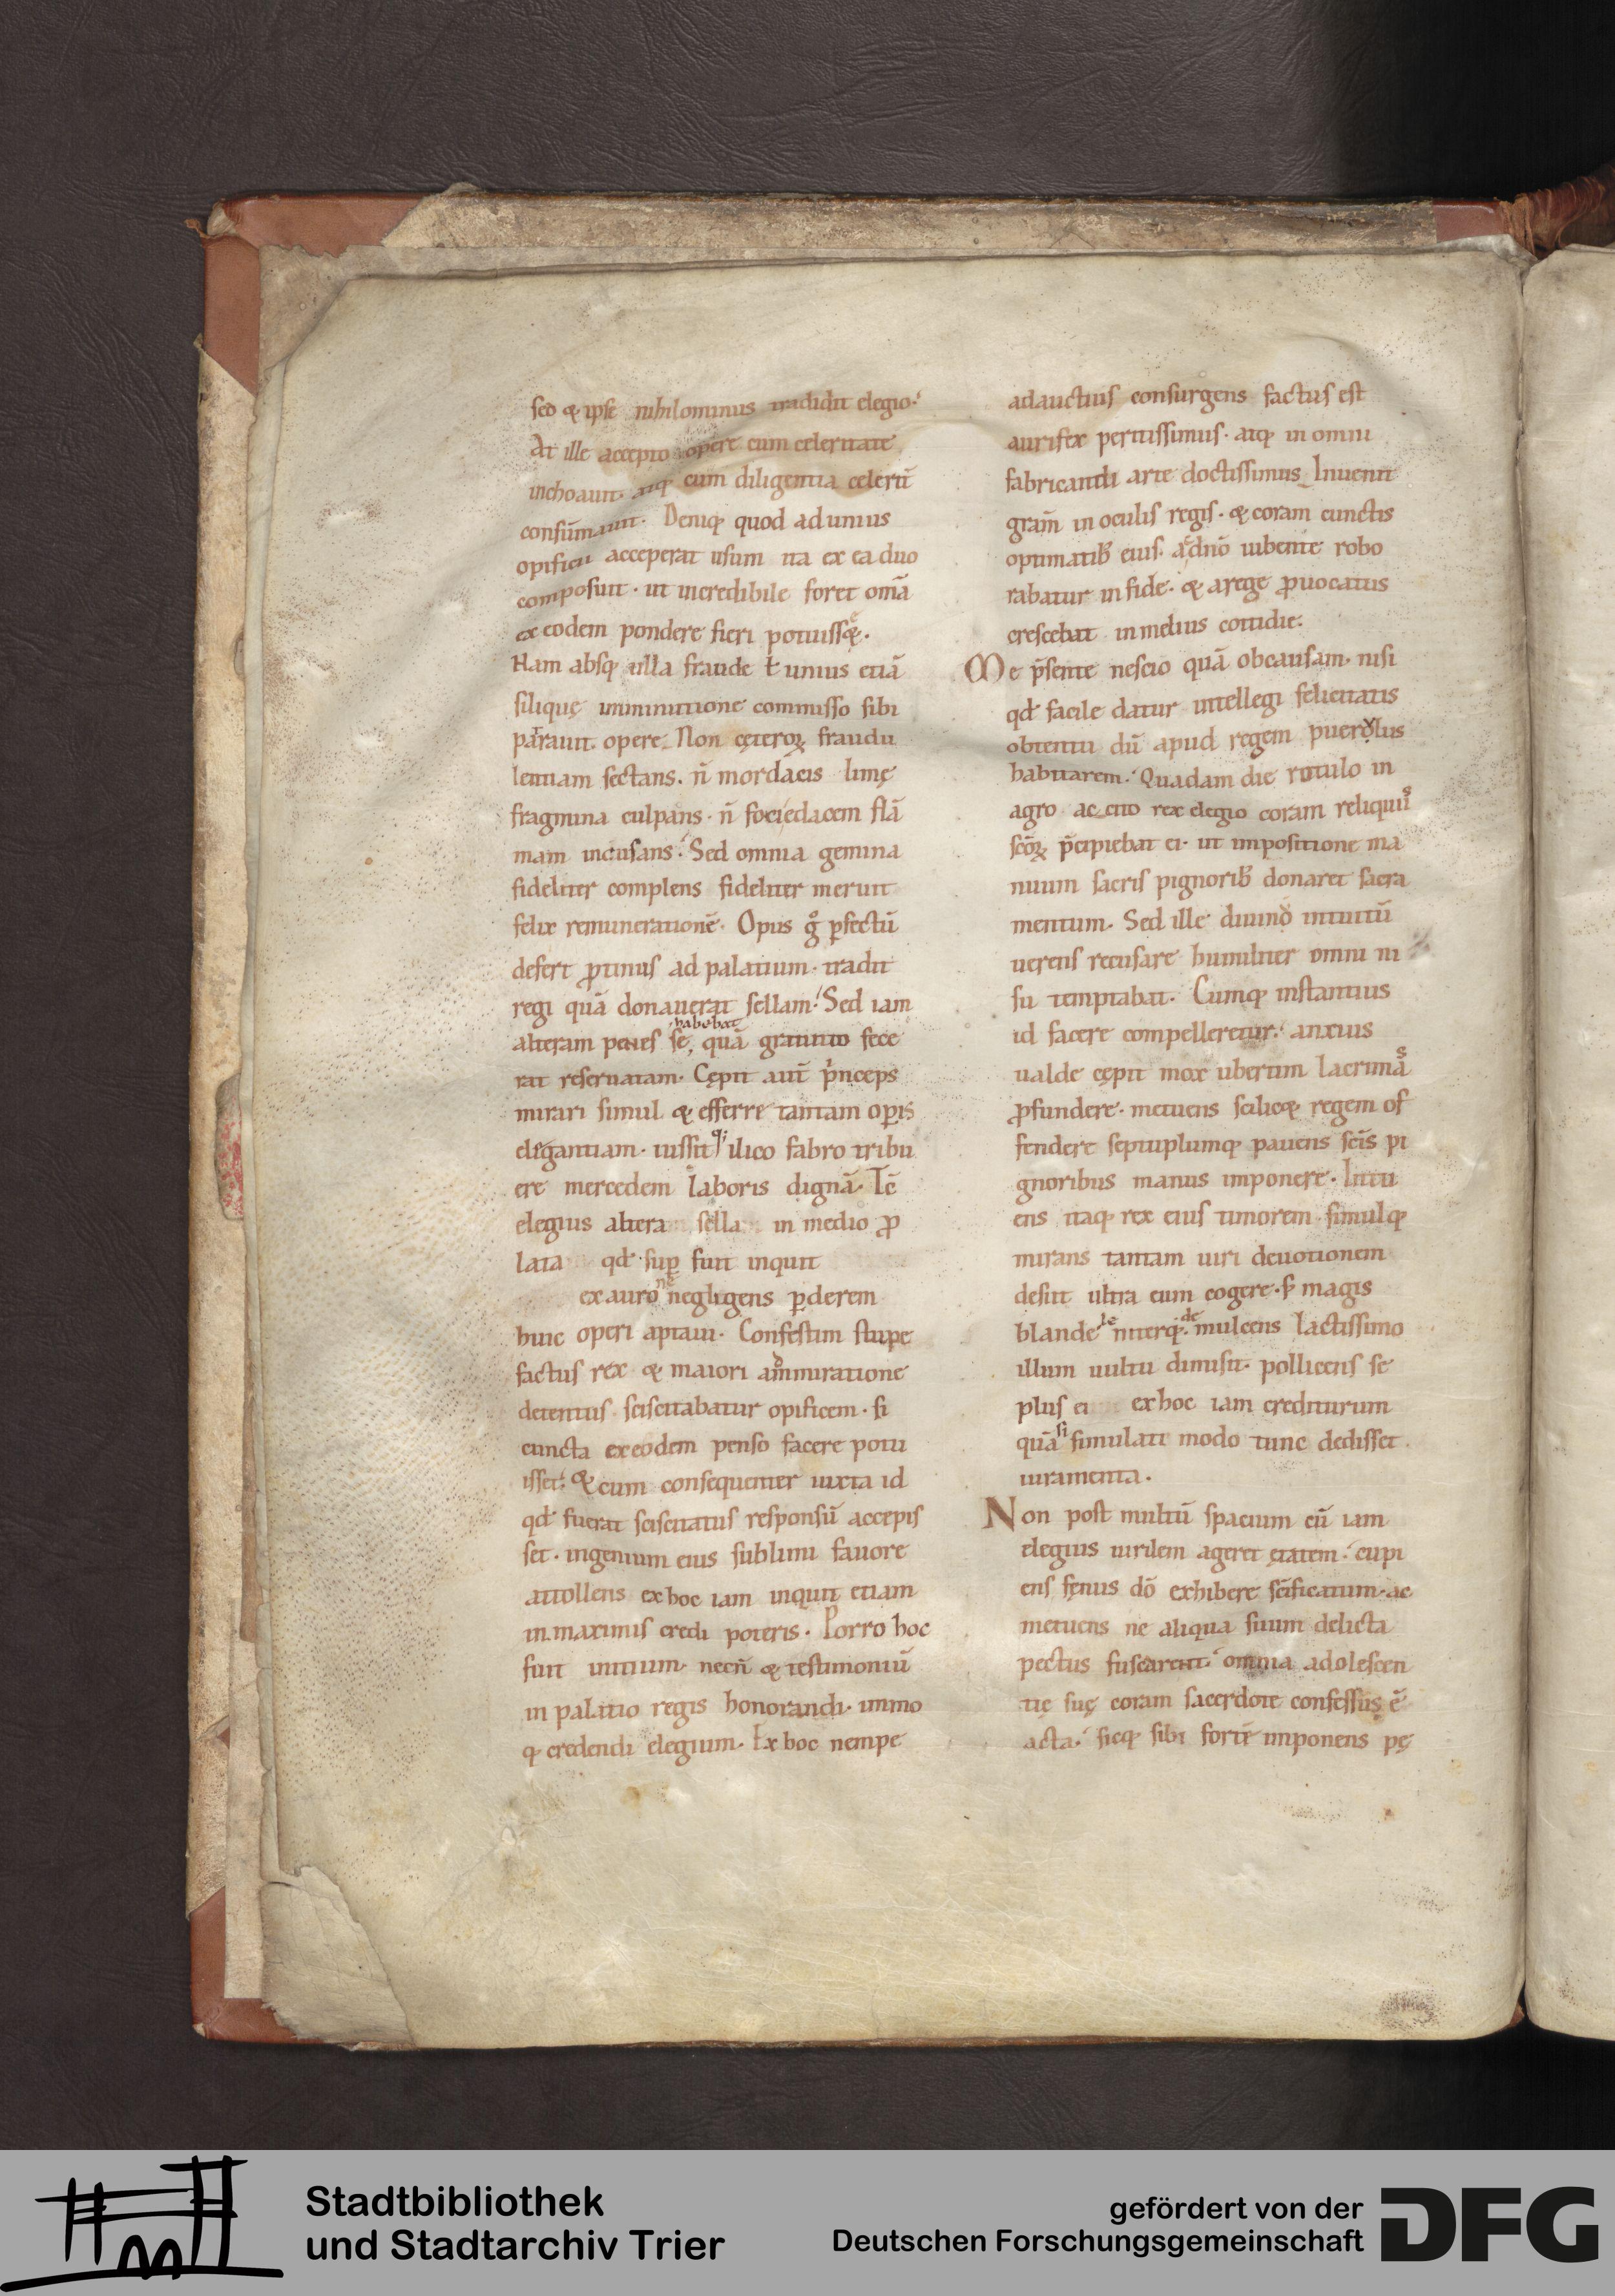 sed & ipse nihilominus tradidit elegio.
At ille accepto opere cum celeritate
inchoauit. atq; cum diligentia celerit̄
consūmauit. Deniq; quod ad unius
opificii acceperat usum ita ex ea duo
composuit. ut incredibile foret om̄a
ex eodem pondere fieri potuiss&.
Nam absq; ulla fraude ł unius etiā
siliquę imminutione commisso sibi
parauit opere. Non cęteroꝝ fraudu
lentiam sectans. n̄ mordacis limę
fragmina culpans. n̄ foci edacem flā
mam incusans. Sed omnia gemina
fideliter complens fideliter meruit
felix remunerationē. Opus gͦ ꝑfectū
defert ꝓtinus ad palatium. tradit
regi quā donauerat sellam. Sed iam
habebat
alteram penes se, quā gratuito fece
rat reseruatam. Cępit aut̄ pͥnceps
mirari simul & efferre tantam oꝑis
elegantiam. iussitqͥ; ilico fabro tribu
ere mercedem laboris dignā. Tc̄
elegius altera sella in medio ꝓ
lata qd̄ suꝑ fuit inquit
ex auro nē negligens ꝑderem
huic operi aptaui. Confestim stupe
factus rex & maiori ammiratione
detentus sciscitabatur opificem. si
cuncta ex eodem penso facere potu
isset. & cum consequenter iuxta id
qd̄ fuerat sciscitatus responsū accepis
set. ingenium eius sublimi fauore
attollens ex hoc iam inquit etiam
in maximis credi poteris. Porro hoc
fuit initium. necn̄ & testimoniū
in palatio regis honorandi. immo
q; credendi elegium. Ex hoc nempe
adauctius consurgens factus est
aurifex peritissimus. atq; in omni
fabricandi arte doctissimus. Inuenit
gram̄ in oculis regis. & coram cunctis
optimatib; eius. & adn̄o iubente robo
rabatur in fide. & a rege ꝓuocatus
crescebat in melius cottidie.
Me p̄sente nescio quā ob causam. nisi
qd̄ facile datur intellegi felicitatis
obtentu dū apud regem puerolus
habitarem. Quadam die rotulo in
agro accito rex elegio coram reliquiis
sc̄oꝝ p̄cipiebat ei. ut impositione ma
nuum sacris pignorib; donaret sacra
mentum. Sed ille diuino intuitū
uerens recusare humiliter omni ni
su temptabat. Cumq; instantius
id facere compelleretur. anxius
ualde cępit mox ubertim lacrimas
ꝓfundere. metuens scilic& regem of
fendere septuplumq; pauens sc̄is pi
gnoribus manus imponere. Intu
ens itaq; rex eius timorem simulq;
mirans tantam uiri deuotionem
desiit ultra eum cogere. s; magis
blande leniterq;. demulcens laetissimo
illum uultu dimisit. pollicens se
plus ei ex hoc iam crediturum
quā si simulati modo tunc dedisset
iuramenta.
Non post multū spacium cū iam
elegius uirilem ageret ętatem. cupi
ens sęnus dō exhibere sc̄ificatum. ac
metuens ne aliqua suum delicta
pectus fuscarent. omnia adolescen
tię suę coram sacerdote confessus ē
acta. sicq; sibi fortē imponens pę
Stadtbibliothek
und Stadtarchiv Trier
gefördert von der
Deutschen Forschungsgemeinschaft
DFG